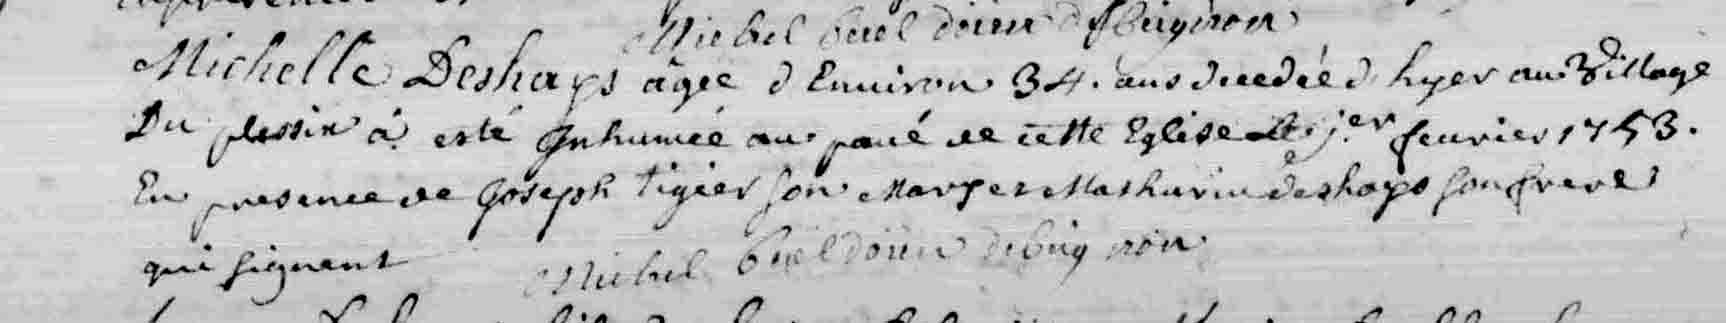 Michel
Michelle Deshays âgée d Environ 34. ans decedée d hyer au Village
Du plessix à esté Inhumée au pavé de cette Eglise le j.er fevrier 1753.
En presence de Joseph tigier son Mary et Mathurin deshays son frere
qui signent
Michel